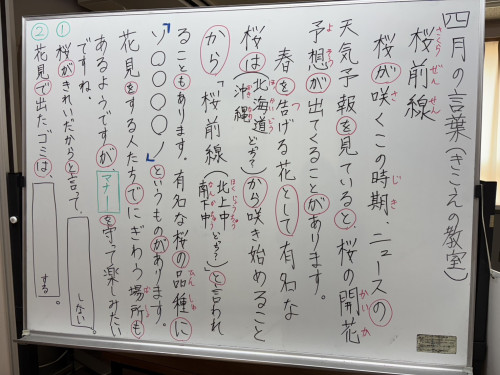 四月の言葉(きこえの教室)
さくら ぜん せん
桜前線
さ じき
桜が咲くこの時期、ニュースの
かいか
天気予報を見ていると、桜の開花
よそう
予想が出てくることがあります。
つ
春を告げる花として有名な
桜は(北海道 沖縄 どっち?)から咲き始めること
から「桜前線(北上中 南下中 どっち?)」と言われ
ることもあります。有名な桜の品種に
「ソ〇〇〇〇ノ」というものがあります。
花見をする人たちでにぎわう場所も
あるようですが、マナーを守って楽しみたい
ですね。
①桜がきれいだからと言って、 しない。
②花見で出たゴミは、 する。